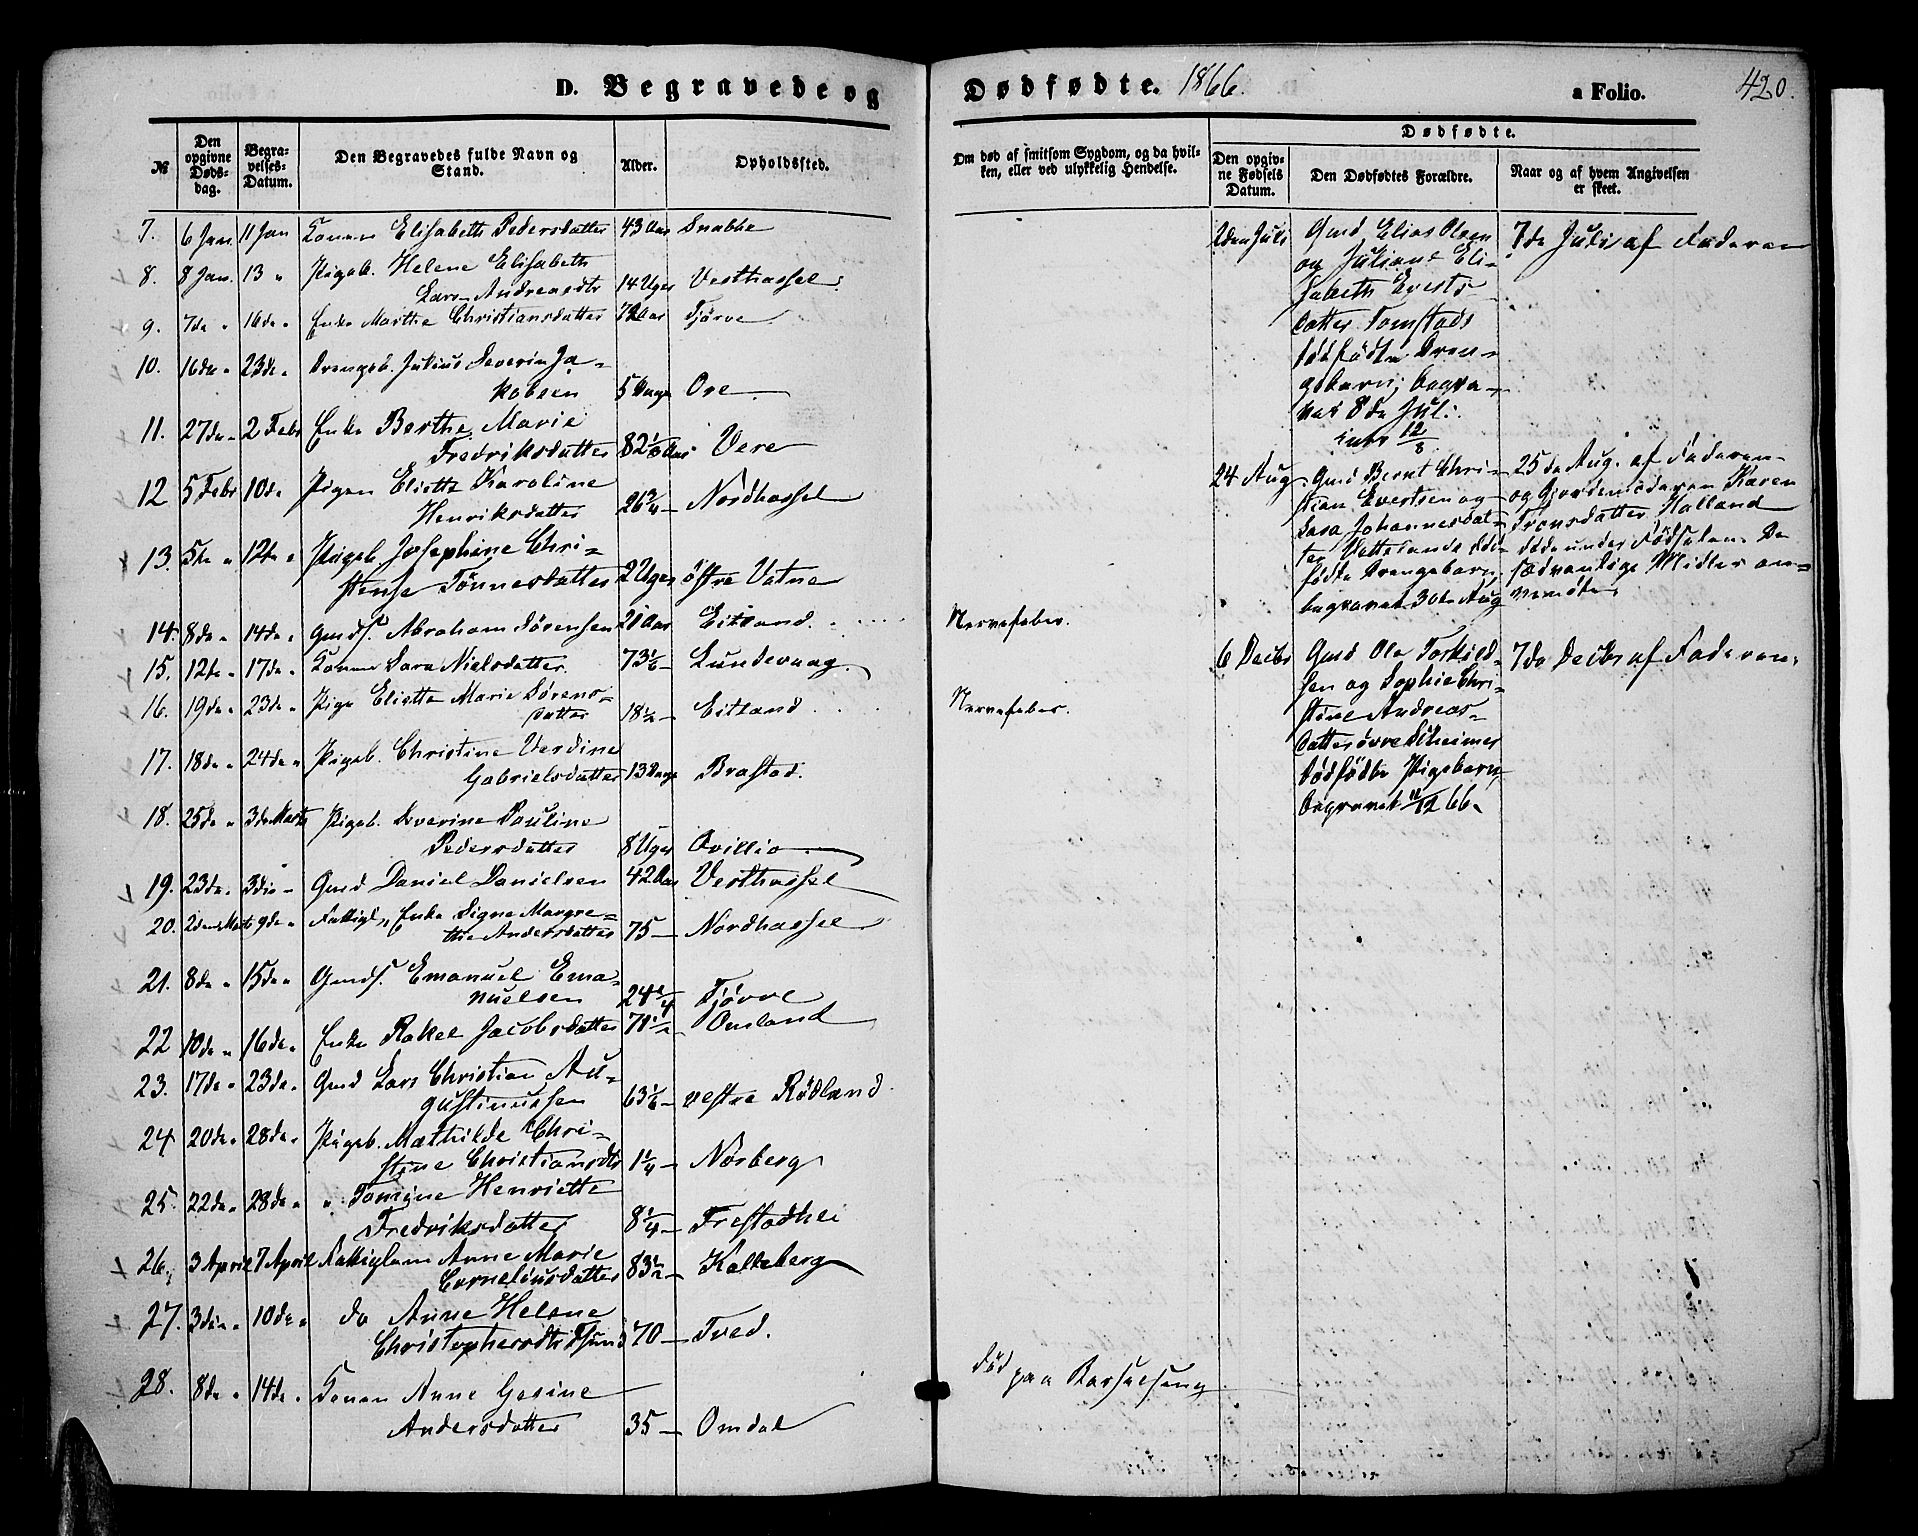 D. Begravede og Dødfødte. 1866. a Folio. 420.
№
Den opgivne Dødsdag.
Begravelses-Datum.
Den Begravedes fulde Navn og Stand.
Alder.
Opholdssted.
Om død af smitsom Sygdom, og da hvilken, eller ved ulykkelig Hendelse.
Dødfødte.
Den opgivne Fødsels Datum.
Den Dødfødtes Forældre.
Naar og af hvem Angivelsen er skeet.
7. 6 Jan. 11 Jan Konen Elisabeth Pedersdatter 43 Aar Snabbe
8. 8 Jan. 13 " Pigeb. Helene Elisabeth
Lars Andreasdtr 14 Uger Vesthassel.
9. 7de " 16de " Enke Marthe Christiansdatter 72 Aar Tjørve
10. 16de " 23de " Drengeb. Julius Severin Ja-
kobsen 5 Dage Ore
11. 27de " 2 Febr Enke Berthe Marie
Fredriksdatter 82 Aar Vere
12 5 Febr 10de Pigen Eliette Karoline
Henriksdatter 26 Nordhassel
13. 5te " 12te " Pigeb Josephine Chri-
stense Tönnesdatter 2 Uger østre Vatne
14. 8de " 14de " Gmds. Abraham Sørensen 21 Aar Eitland Nervefeber.
15. 12te " 17de " Konen Sara Nielsdatter 73 Lundevaag
16. 19de " 23de " Pige Eliette Marie Sørens-
datter 18½ Eitland Nervefeber.
17. 18de " 24de " Pigeb. Christine Verdine
Gabrielsdatter 13 Dage Brastad.
18. 25de " 3de Marts Pigeb. Severine Pauline
Pedersdatter 8 Uger
19. 23de " 3die " Gmd Daniel Danielsen 42 Aar Vesthassel
20. 2den Marts 9de " Fattigl. Enke Signe Margre-
the Andersdatter 75 Nordhassel
21. 8de " 15de " Gmds. Emanuel Ema-
nuelsen 24 Tjørve
22 10de " 16de " Enke Rakel Jacobsdatter 71½ Omland
23. 17de " 23de " Gmd Lars Christian Au-
gustinussen 63 vestre Rødland
24 20de " 28de " Pigeb. Mathilde Chri-
stine Christiansdtr 1¼ Nørberg
25. 22de " 28de " " Tomine Henriette
Fredriksdatter 8¼ Frestadhei
26. 3 April 7 April Fattiglem Anne Marie
Corneliusdatter 83½ Kalleberg
27. 3die " 10de " do Anne Helene
Christophersdtr 70 Tved.
28. 8de " 14de " Konen Anne Gesine
Andersdatter 35 Omdal
Död paa Barselseng
2den Juli
Gmd Elias Olsen
og Juliane Eli-
sabeth Everts-
datter Tomstads
dødfødte Dren-
gebarn, begra-
vet 8de Juli.
7de Juli af Faderen
24 Aug
Gmd Bernt Chri-
stian Evertsen og
Sara Johannesdat-
ter Vettelands død-
fødte Drengebarn,
begravet 30te Aug
25de Aug. af Faderen
og Gjordemoderen Karen
Tronsdatter Halland
døde under Fødselen. De
sædvanlige Midler an-
6 Decbr
Gmd Ole Torkild-
sen og Sophie Chri-
stine Andreas-
datter øvre
dødfødte Pigebarn,
begravet 11/12 66.
7de Decbr af Faderen.